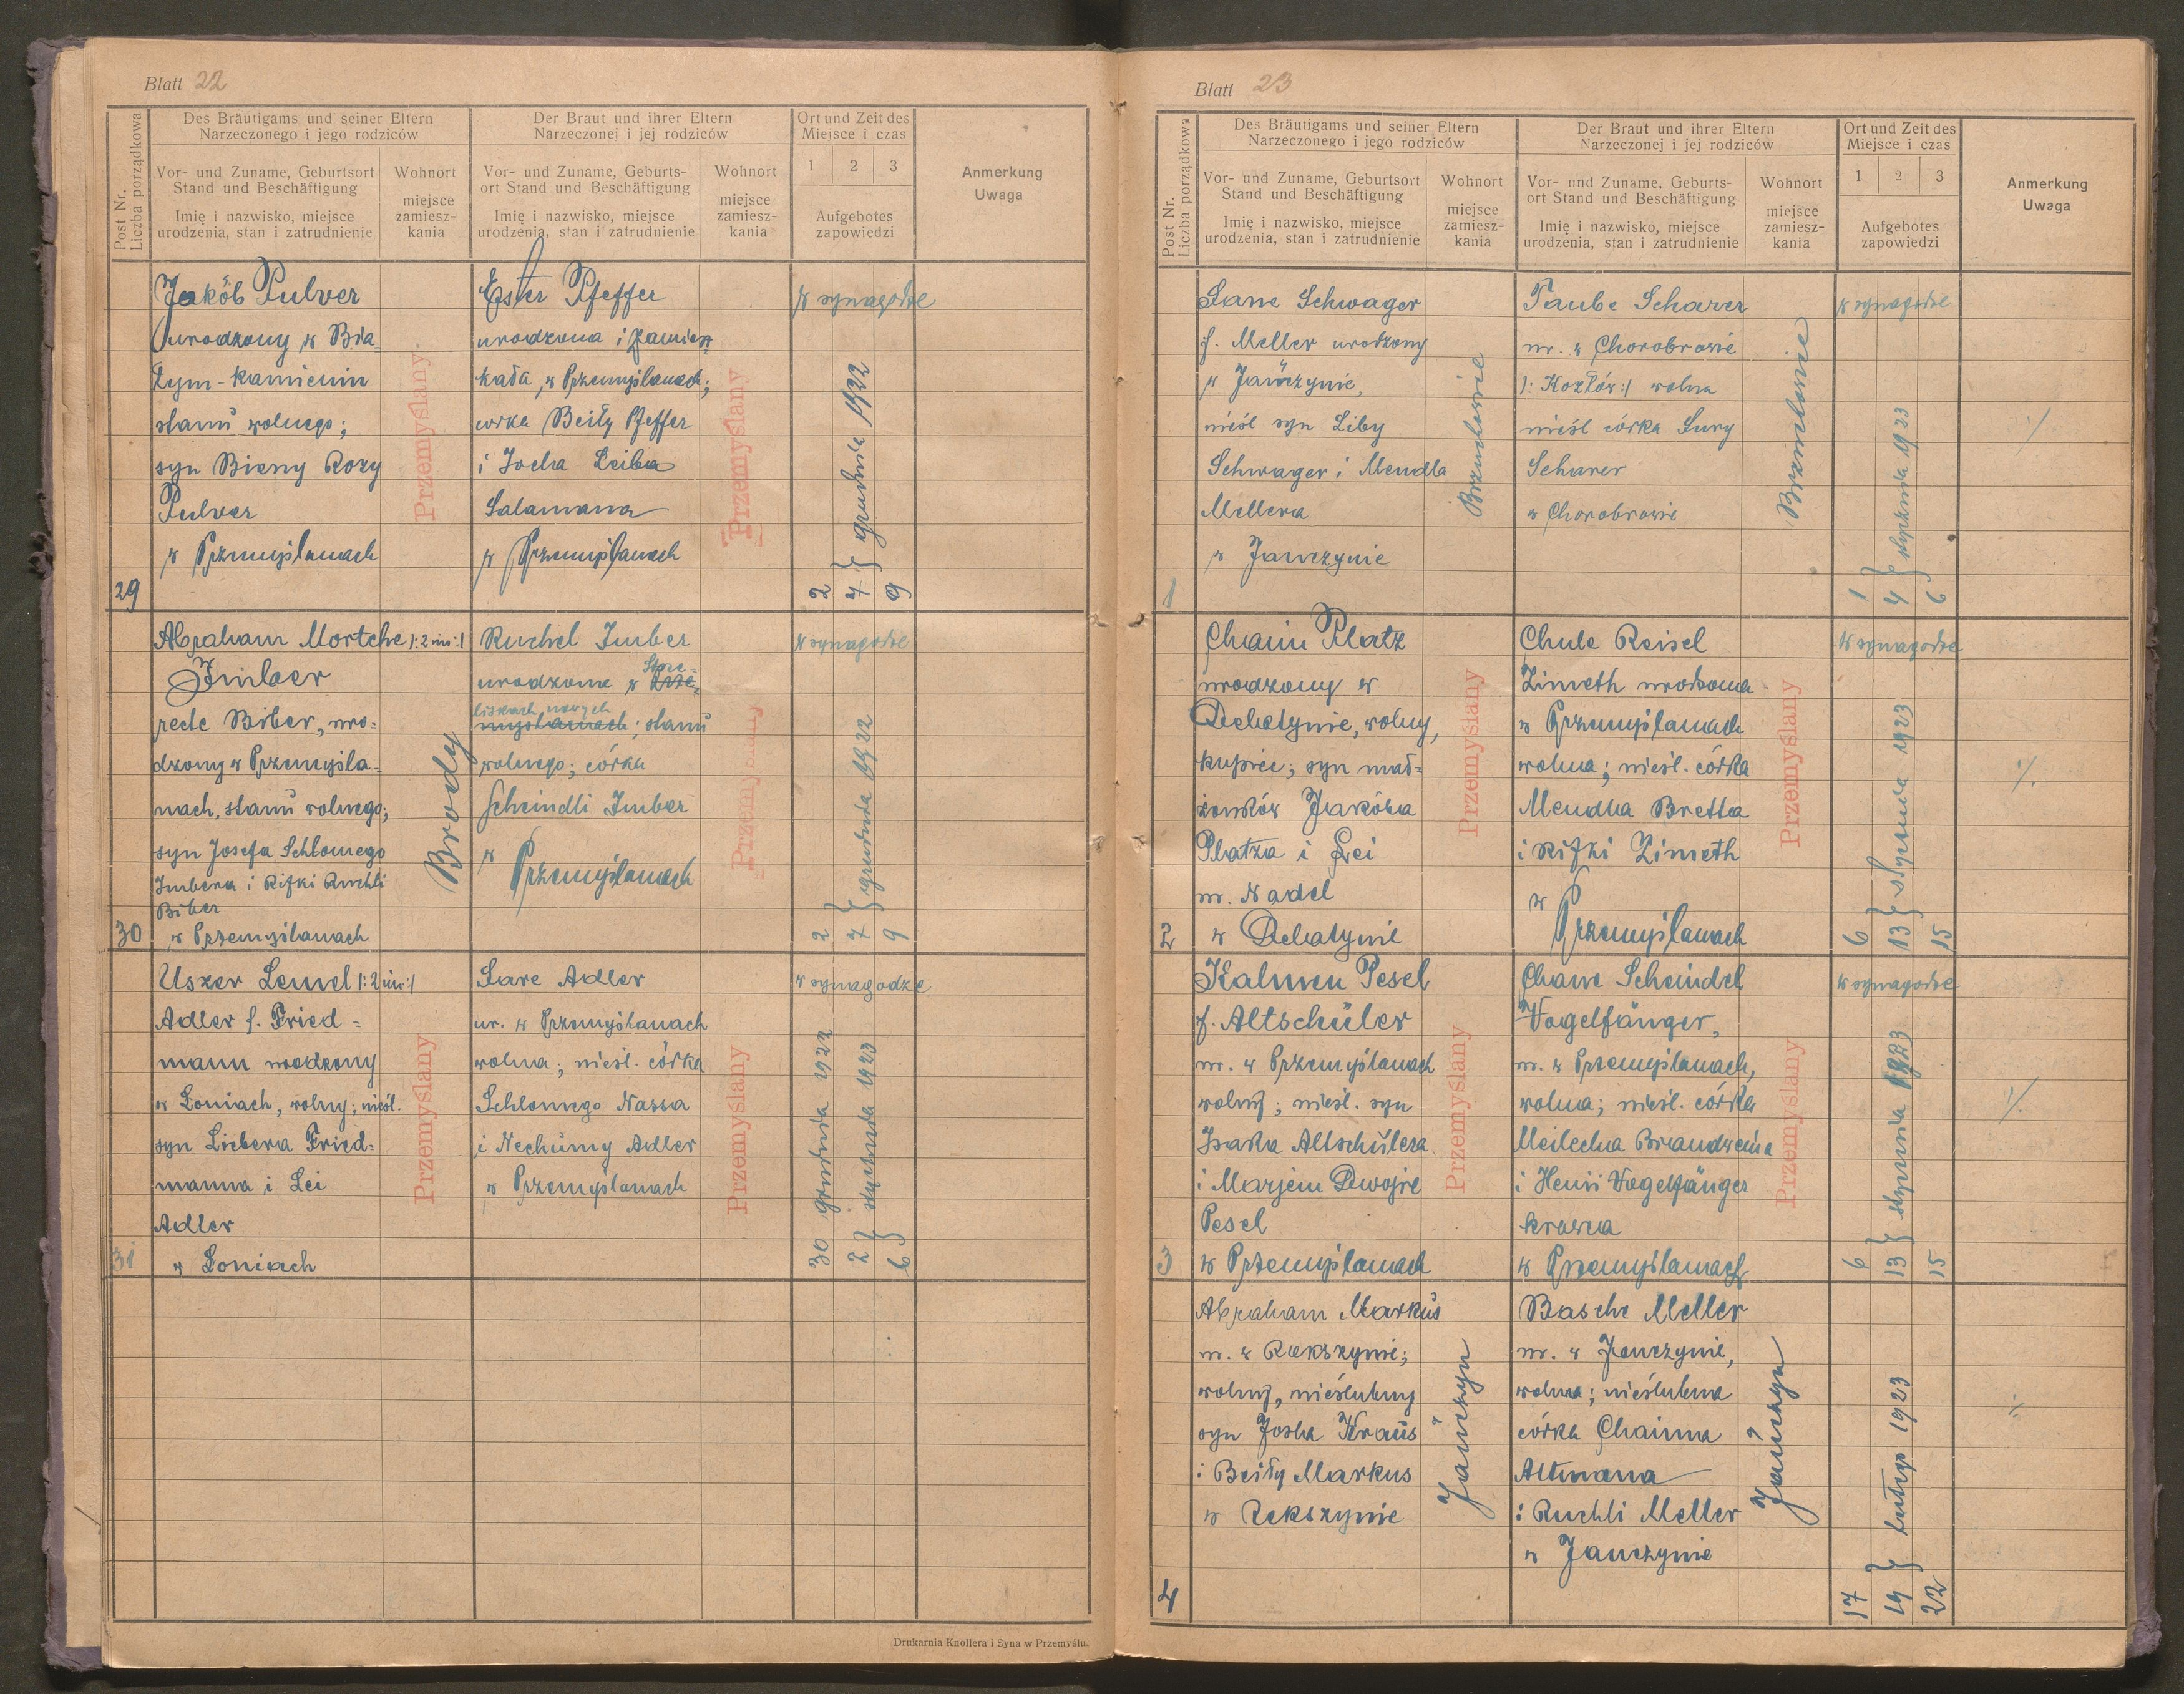 Blatt 22
Post Nr.
Liczba porządkowa
Des Bräutigams und seiner Eltern
Narzeczonego i jego rodziców
Der Braut und ihrer Eltern
Narzeczonej i jej rodziców
Ort und Zeit des
Miejsce i czas
Vor- und Zuname, Geburtsort
Stand und Beschäftigung
Imię i nazwisko, miejsce
urodzenia, stan i zatrudnienie
Wohnort
miejsce
zamiesz-
kania
Vor- und Zuname, Geburts-
ort Stand und Beschäftigung
Imię i nazwisko, miejsce
urodzenia, stan i zatrudnienie
Wohnort
miejsce
zamiesz-
kania
1 2 3
Aufgebotes
zapowiedzi
Anmerkung
Uwaga
29
Jakób Pulver
urodzony w Bia=
łym-kamieniu
stanu wolnego;
syn Bieny Rozy
Pulver
w Przemyślanach
Przemyślany
Ester Pfeffer
urodzona i zamiesz
kała w Przemyślanach;
córka Beily Pfeffer
i Jocha Leiba
Salamana
w Przemyślanach
Przemyślany
w synagodze
2 7 9 } grudnia 1922
30
Abraham Mortche /:2 im:/
Imber
recte Biber, uro=
dzony w Przemyśla=
nach, stanu wolnego;
syn Josefa Schlomego
Imbera i Rifki Ruchli
Biber
w Przemyślanach
Brody
Ruchel Imber
urodzona w Strze=
liskach nowych
; stanu
wolnego; córka
Scheindli Imber
w Przemyślanach
Przemyślany
w synagodze
2 7 9 } grudnia 1922
31
Uszer Lemel /:2 im:/
Adler f. Fried=
mann urodzony
w Łoniach, wolny; nieśl.
syn Liebera Fried=
manna i Lei
Adler
w Łoniach
Przemyślany
Sare Adler
ur. w Przemyślanach
wolna; nieśl. córka
Schlomego Nassa
i Nechumy Adler
w Przemyślanach
Przemyślany
w synagodze
30 grudnia 1922
2 6 } stycznia 1923
Drukarnia Knollera i Syna w Przemyślu.
Blatt 23
Post Nr.
Liczba porządkowa
Des Bräutigams und seiner Eltern
Narzeczonego i jego rodziców
Der Braut und ihrer Eltern
Narzeczonej i jej rodziców
Ort und Zeit des
Miejsce i czas
Vor- und Zuname, Geburtsort
Stand und Beschäftigung
Imię i nazwisko, miejsce
urodzenia, stan i zatrudnienie
Wohnort
miejsce
zamiesz-
kania
Vor- und Zuname, Geburts-
ort Stand und Beschäftigung
Imię i nazwisko, miejsce
urodzenia, stan i zatrudnienie
Wohnort
miejsce
zamiesz-
kania
1 2 3
Aufgebotes
zapowiedzi
Anmerkung
Uwaga
1
Sane Schwager
f. Meller urodzony
w Janczynie,
nieśl syn Liby
Schwager i Mendla
Mellera
w Janczynie
Taube Scharer
ur. w Chorobrowie
/: Kozłów:/ wolna
nieśl córka Sury
Scharer
w Chorobrowie
w synagodze
1 4 6 } stycznia 1923
2
Chaim Platz
urodzony w
Delatynie, wolny,
kupiec; syn mał=
żonków Jakóba
Platza i Lei
ur. Nadel
w Delatynie
Przemyślany
Chule Reisel
Zimeth urodzona
w Przemyślanach
wolna; nieśl. córka
Mendla Bretta
i Rifki Zimeth
w Przemyślanach
Przemyślany
w synagodze
6 13 15 } stycznia 1923
3
Kalmen Pesel
f. Altschüler
ur. w Przemyślanach
wolny; nieśl. syn
Izaka Altschülera
i Marjem Dwojre
Pesel
w Przemyślanach
Przemyślany
Chane Scheindel
Vogelfänger,
ur. w Przemyślanach,
wolna; nieśl. córka
Meilecha Brandweina
i Heni Vogelfänger
w Przemyślanach
Przemyślany
w synagodze
6 13 15 } stycznia 1923
4
Abraham Markus
ur. w Rekszynie;
wolny, nieślubny
syn Josla Kraus
i Beiły Markus
w Rekszynie
Janczyn
Basche Meller
ur. w Janczynie,
wolna; nieślubna
córka Chaima
Altmana
i Ruchli Meller
w Janczynie
Janczyn
17 19 22 } lutego 1923